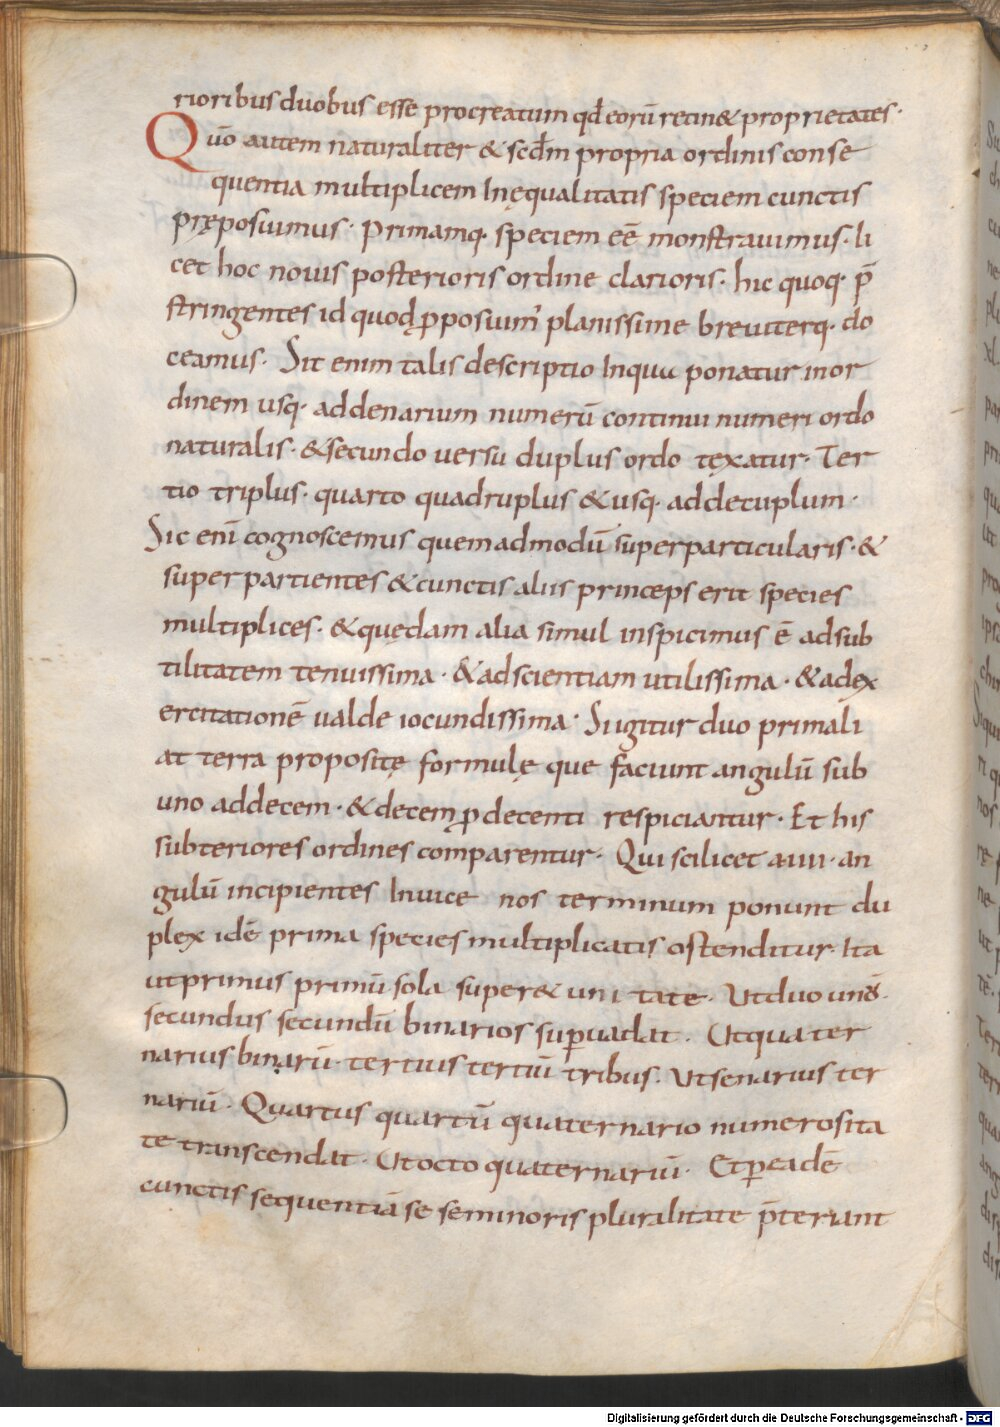 rioribus duobus esse procreatum qđ eorū retin& proprietates·
Quō autem naturaliter & scđm propria ordinis conse
quentia multiplicem Inęqualitatis speciem cunctis
pręposuimus· Primamq· speciem eē monstrauimus· li
cet hoc nouis posterioris ordine clarioris· hic quoq· p̄
stringentes id quod ꝓposuim᾽ planissime breuiterq· do
ceamus· Sit enim talis descriptio Inqua ponatur inor
dinem usq· addenarium numerū continui numeri ordo
naturalis· &secundo uersu duplus ordo tęxatur· Ter
tio triplus· quarto quadruplus & usq· addecuplum·
Sic enī cognoscemus quemadmodū superparticularis· &
superpartientes & cunctis aliis princeps erit species
multiplices· & quędam alia simul inspicimus ē adsub
tilitatem tenuissima· & adscientiam utilissima· & adex
ercitationē ualde iocundissima· Si igitur duo prima li
at terra propositę formulę que faciunt angulū sub
uno addecem· & decem ꝓ decenti respiciantur· Et his
subteriores ordines comparentur· Qui scilicet a iiii· an
gulū incipientes Inuice nos terminum ponunt du
plex idē prima species multiplicatis ostenditur· Ita
utprimus primū sola super& uni tate· Ut duo unū·
secundus secundū binarios suꝑuadat· Ut quater
narius binarū· tertius tertiū tribus· Ut senarius ter
nariū· Quartus quartū quaternario numerosita
te transcendat· Ut octo quaternariū· Et ꝑ eadē
cunctis sequentiā se seminoris pluralitate p̄teriant
Digitalisierung gefördert durch die Deutsche Forschungsgemeinschaft - DFG